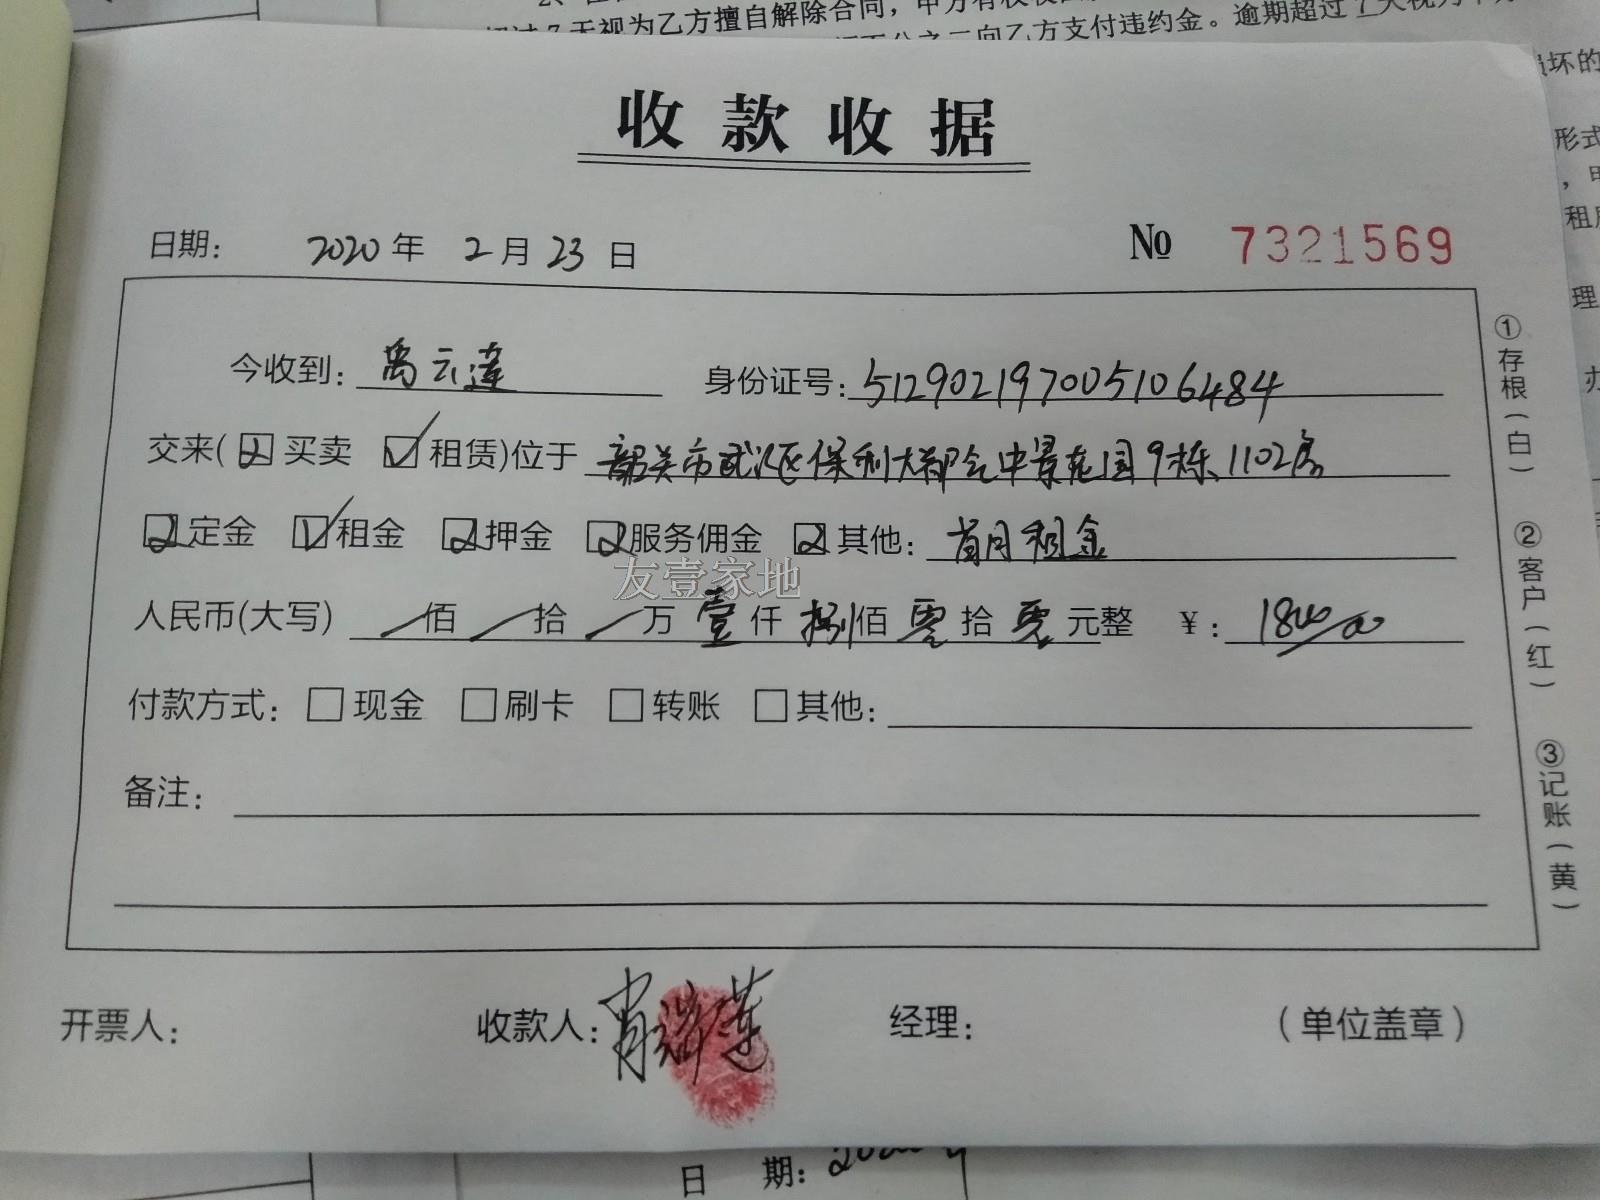 超过7天视为乙方擅自解除合同，甲方有权
向乙方支付违约金。逾期超过7天视为
损坏的
形式
租
理
收款收据
日期： 2020年 2月 23日 № 7321569
今收到：禹云莲 身份证号：512902197005106484
交来(☐买卖 ☑租赁)位于 韶关市武江区保利大都会中景花园9栋1102房
☐定金 ☑租金 ☐押金 ☐服务佣金 ☐其他：首月租金
友壹家地
人民币(大写) /佰/拾/万壹仟捌佰零拾零元整 ￥：1800/00
付款方式：☐现金 ☐刷卡 ☐转账 ☐其他：
备注：
开票人： 收款人：肖瑞莲 经理： （单位盖章）
①存根（白）
②客户（红）
③记账（黄）
日 期：